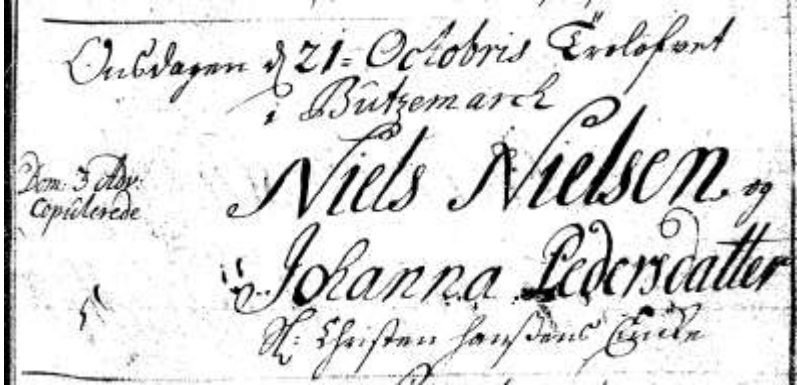 Onsdagen d 21= Octobris Trolofvet
i Bützemarck
Dom: 3 Adv:
Copulerede
Niels Nielsen og
Johanna Pedersdatter
Sl: Christen Hanßens Enke